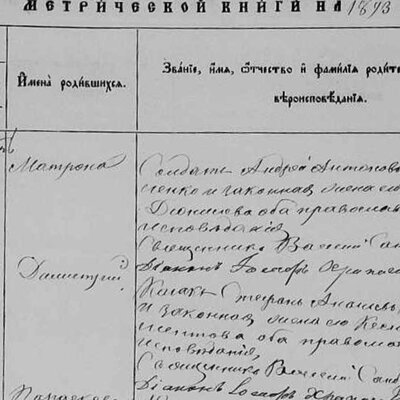 МЕТРИЧЕСКОЙ КНИГИ НА 1893
Имена родившихся.
Званіе, имя, отчество и фамилія родите
вѣроисповѣданія.
Матрона
Солдатъ Андрей Антоновъ
ненко и законная жена его
Діонисова оба православ
исповѣданія
Священникъ Василій Сав
Діаконъ Іосифъ
Димитрій
Казакъ Стефанъ Ананьевъ
и законная жена его Ксен
ментова оба правосла
исповѣданія,
Священникъ Василій Савв
Діаконъ Іосифъ
Параскев